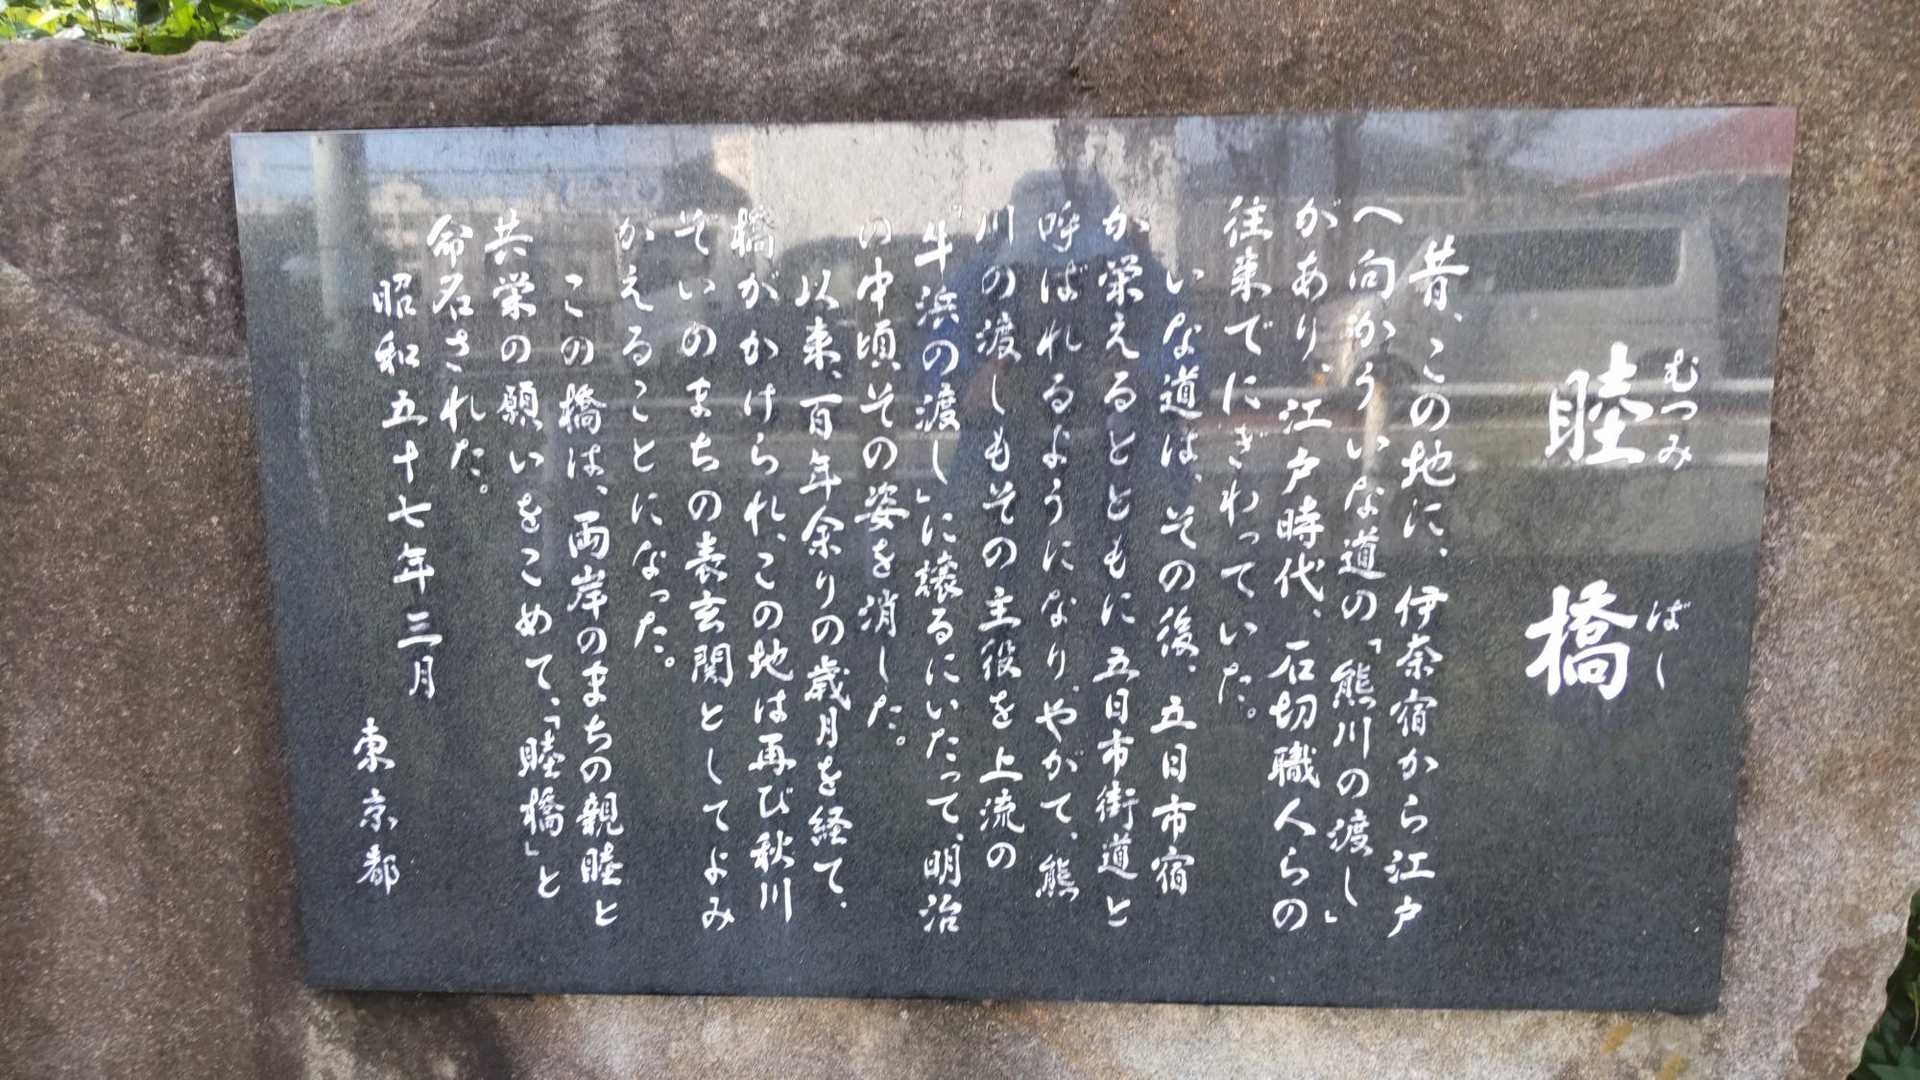 睦橋
むつみばし
昔、この地に、伊奈宿から江戸
へ向かういな道の「熊川の渡し」
があり、江戸時代、石切職人らの
往来でにぎわっていた。
いな道は、その後、五日市宿
が栄えるとともに五日市街道と
呼ばれるようになり、やがて、熊
川の渡しもその主役を上流の
「牛浜の渡し」に譲るにいたって、明治
の中頃、その姿を消した。
以来、百年余りの歳月を経て、
橋がかけられ、この地は再び秋川
ぞいのまちの表玄関としてよみ
がえることになった。
この橋は、両岸のまちの親睦と
共栄の願いをこめて、「睦橋」と
命名された。
昭和五十七年三月
東京都